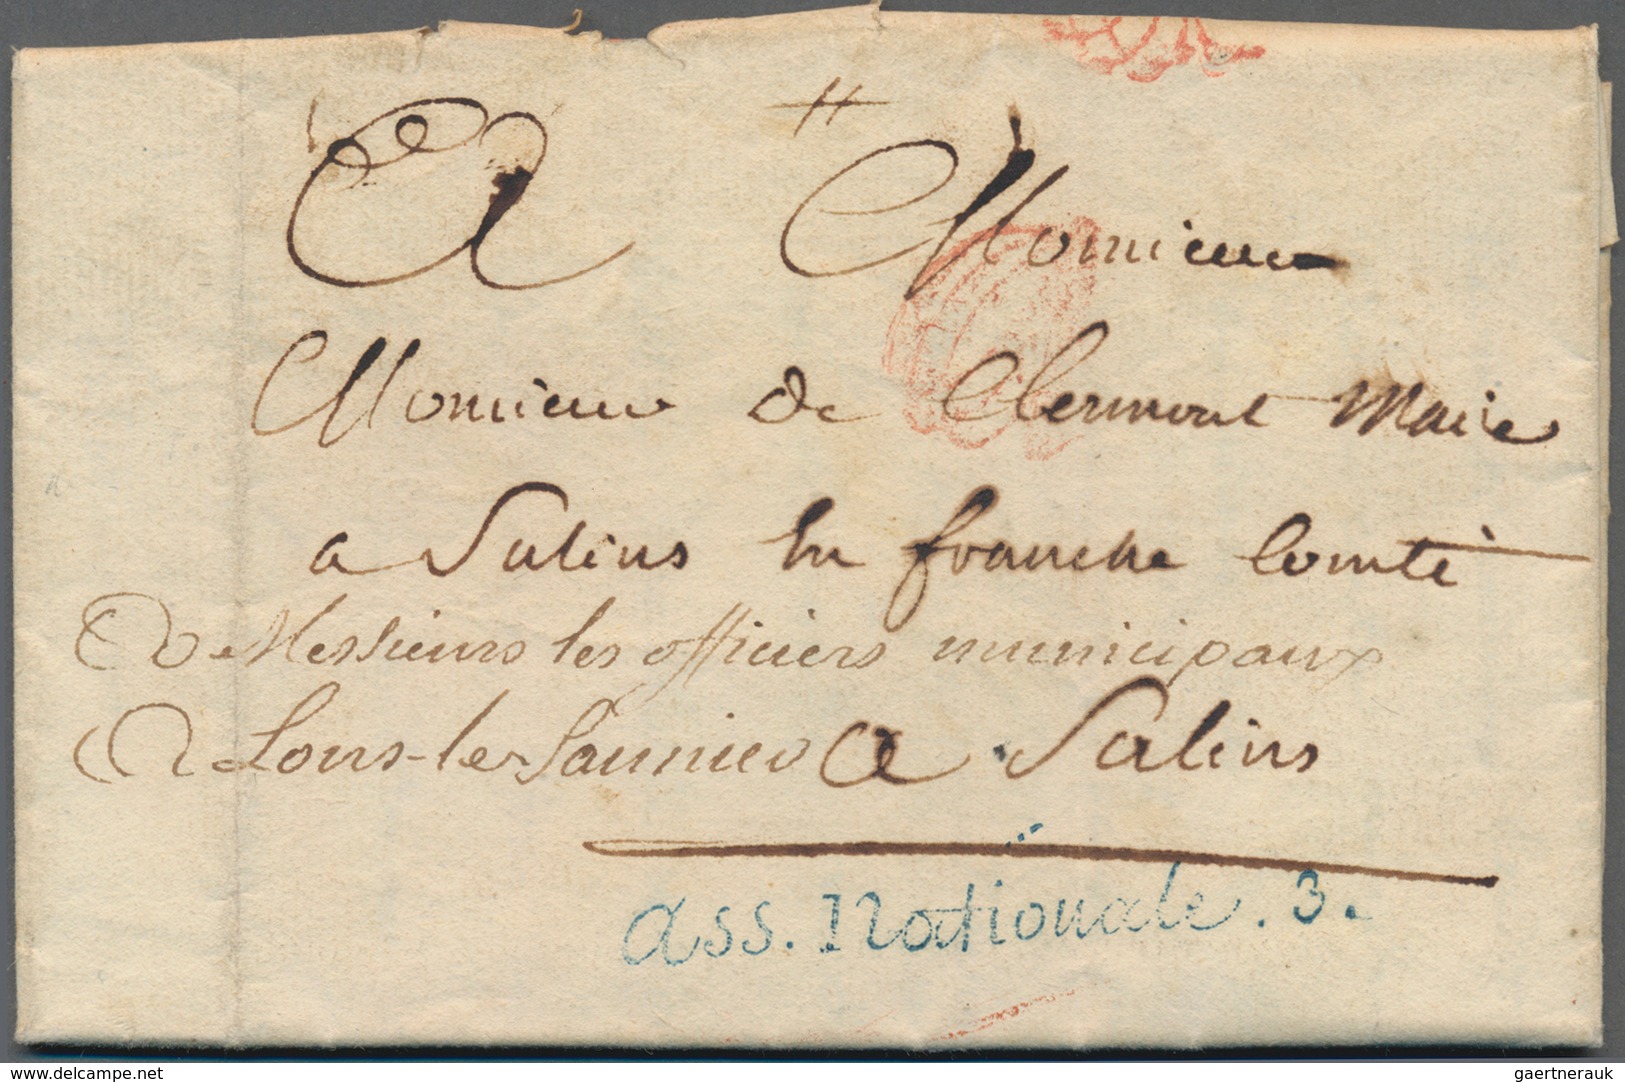 A Monsieur
Monsieur de Clermont Maire
a Salins en franche Comté
Messieurs les officiers municipaux
Lons-le-Saunier a Salins
ass. Nationale. 3.
www.delcampe.net
gaertnerauk